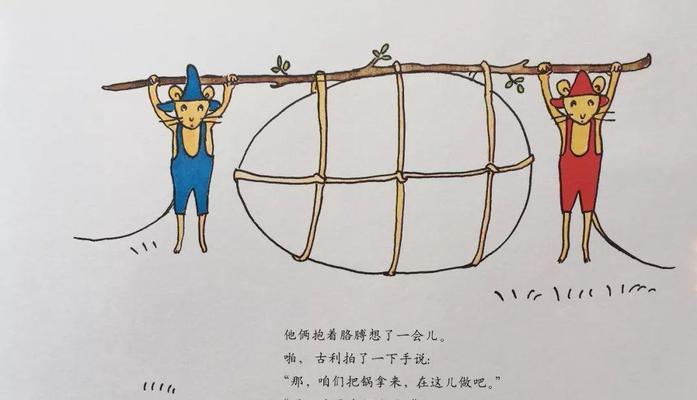 他俩抱着胳膊想了一会儿。
啪，古利拍了一下手说：
“那，咱们把锅拿来，在这儿做吧。”